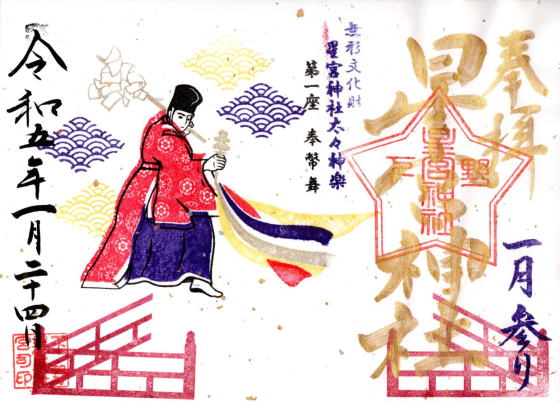 奉拝
一月参り
星宮神社
星宮神社
無形文化財
星宮神社太々神楽
第一座 奉幣舞
令和五年一月二十四日
宮司印